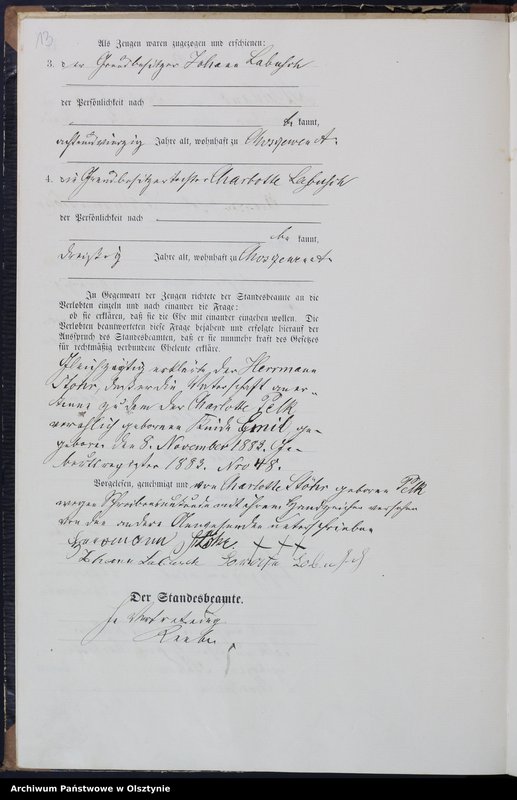 13
Als Zeugen waren zugezogen und erschienen:
3. der Grundbesitzer Johann Labusch
der Persönlichkeit nach
be kannt,
achtundvierzig Jahre alt, wohnhaft zu
4. die Grundbesitzertochter Charlotte Labusch
der Persönlichkeit nach
be kannt,
dreißig Jahre alt, wohnhaft zu
In Gegenwart der Zeugen richtete der Standesbeamte an die
Verlobten einzeln und nach einander die Frage:
ob sie erklären, daß sie die Ehe mit einander eingehen wollen. Die
Verlobten beantworteten diese Frage bejahend und erfolgte hierauf der
Ausspruch des Standesbeamten, daß er sie nunmehr kraft des Gesetzes
für rechtmäßig verbundene Eheleute erkläre.
Gleichzeitig erklärte der Herrmann
Stöhr, daß er die Vaterschaft aner-
kenne zu dem der Charlotte Pelk
unehelich geborenen Kinde Emil ge-
geboren den 8. November 1883. Ge-
burtsregister 1883. Nro 48.
Vorgelesen, genehmigt und von Charlotte Stöhr geborene Pelk
wegen Schreibensunkunde mit ihrem Handzeichen versehen
von den andern Anwesenden unterschrieben
Herrmann Stöhr. +++
Johann Labusch Labusch
Der Standesbeamte.
In Vertretung
Archiwum Państwowe w Olsztynie